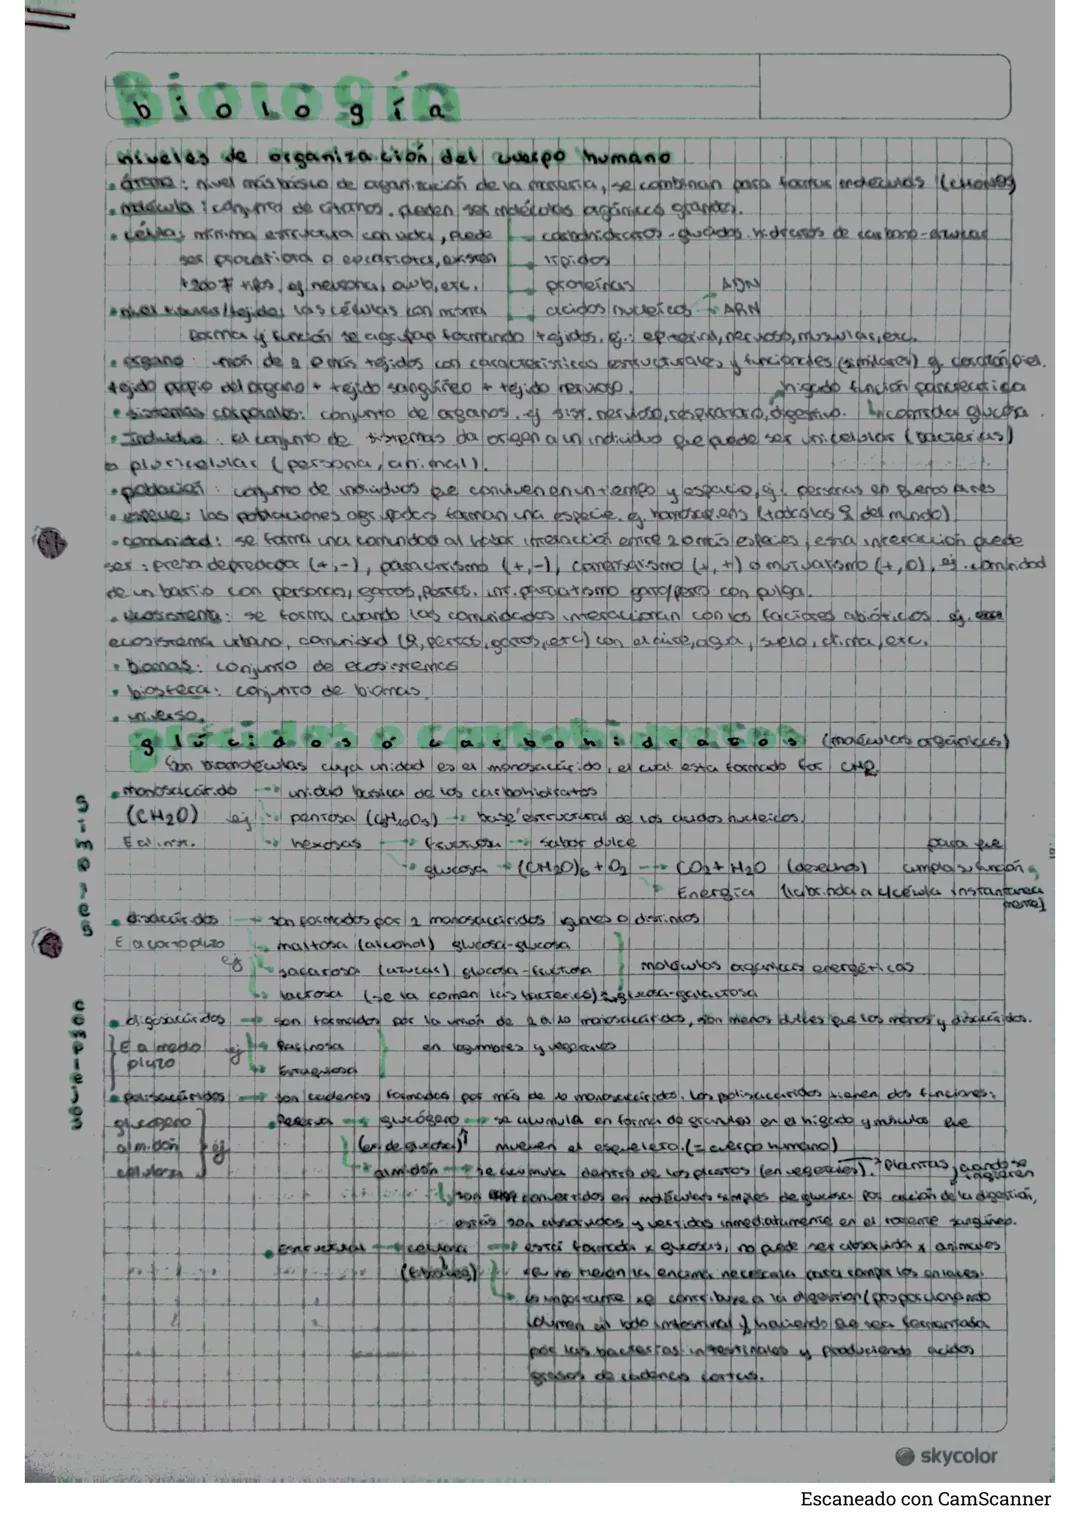 Biología
biología
niveles de organización del cuerpo humano
• átomo: nivel más básico de organización de la materia, se combinan para formar moléculas
• molécula: conjunto de átomos. pueden ser moléculas orgánicas grandes.
• célula: mínima estructura con vida, puede → carbohidratos - glúcidos - hidratos de carbono -
ser procariota o eucariota, existen → lípidos
+200 ≠ tipos, ej neurona, etc. → proteínas ADN
• tejido: las células con misma → ácidos nucleicos → ARN
forma y función se agrupan formando tejidos. ej.: epitelial, nervioso, muscular, etc.
• órgano: unión de 2 o más tejidos con características estructurales y funcionales (similares) ej. corazón, piel.
tejido propio del órgano + tejido sanguíneo + tejido nervioso. hígado función pancreática
• sistemas corporales: conjunto de órganos. ej sist. nervioso, respiratorio, digestivo. glucosa
• Individuo: el conjunto de sistemas da origen a un individuo que puede ser unicelular (bacterias)
o pluricelular (persona, animal).
• población: conjunto de individuos que conviven en un tiempo y espacio, ej: personas en Buenos Aires
• especie: las poblaciones agrupadas forman una especie. ej. homosapiens (todas las del mundo)
• comunidad: se forma una comunidad al haber interacción entre 2 o más especies, esta interacción puede
ser: presa depredador (+,-), parasitismo (+,-), (+,+) o mutualismo (+,0), ej. comunidad
de un barrio con personas, gatos, perros. int. parasitismo gato/perro con pulga.
• ecosistema: se forma cuando las comunidades interaccionan con los factores abióticos ej.
ecosistema urbano, comunidad (perros, gatos, etc) con el aire, agua, suelo, clima, etc.
• biomas: conjunto de ecosistemas
• biosfera: conjunto de biomas.
• universo.
glúcidos o carbohidratos
glúcidos o carbohidratos (moléculas orgánicas)
Son biomoléculas cuya unidad es el monosacárido, el cual esta formado por
simples
• monosacárido → unidad básica de los carbohidratos
(CH2O) ej → pentosa → base estructural de los ácidos nucleicos.
E al inst. → hexosas → fructosa → sabor dulce para que
→ glucosa → (CH2O)6 + O2 → CO2 + H2O (desechos) cumpla su función
→ Energía (instantáneamente)
• disacáridos → son formados por 2 monosacáridos iguales o distintos
E a corto plazo → maltosa (alcohol) glucosa-glucosa
ej → sacarosa (azúcar) glucosa-fructosa moléculas orgánicas energéticas
→ lactosa (se la comen las bacterias) → glucosa-galactosa
complejos
• oligosacáridos → son formados por la unión de 2 a 10 monosacáridos, son menos dulces que los monos y disacáridos.
E a medio ej → Rafinosa en legumbres y vegetales
plazo → Estaquiosa
• polisacáridos → son cadenas formadas por más de 10 monosacáridos. Los polisacáridos tienen dos funciones:
glucógeno • Reserva → glucógeno → se acumula en forma de gránulos en el hígado y músculos que
almidón ej mueven el esqueleto. (= cuerpo humano)
celulosa → almidón → se acumula dentro de los plastos (en vegetales). → plantas, cuando se ingieren
son convertidos en moléculas simples de glucosa por acción de la digestión,
estas son absorbidas y vertidas inmediatamente en el torrente sanguíneo.
• Estructural → celulosa → está formada x glucosas, no puede ser absorbida x animales
no tienen la enzima necesaria para romper los enlaces.
→ es importante xq contribuye a la digestión (proporcionando
volumen al bolo intestinal) y haciendo que sea fermentada
por las bacterias intestinales y produciendo ácidos
grasos de cadenas cortas.
skycolor
Escaneado con CamScanner